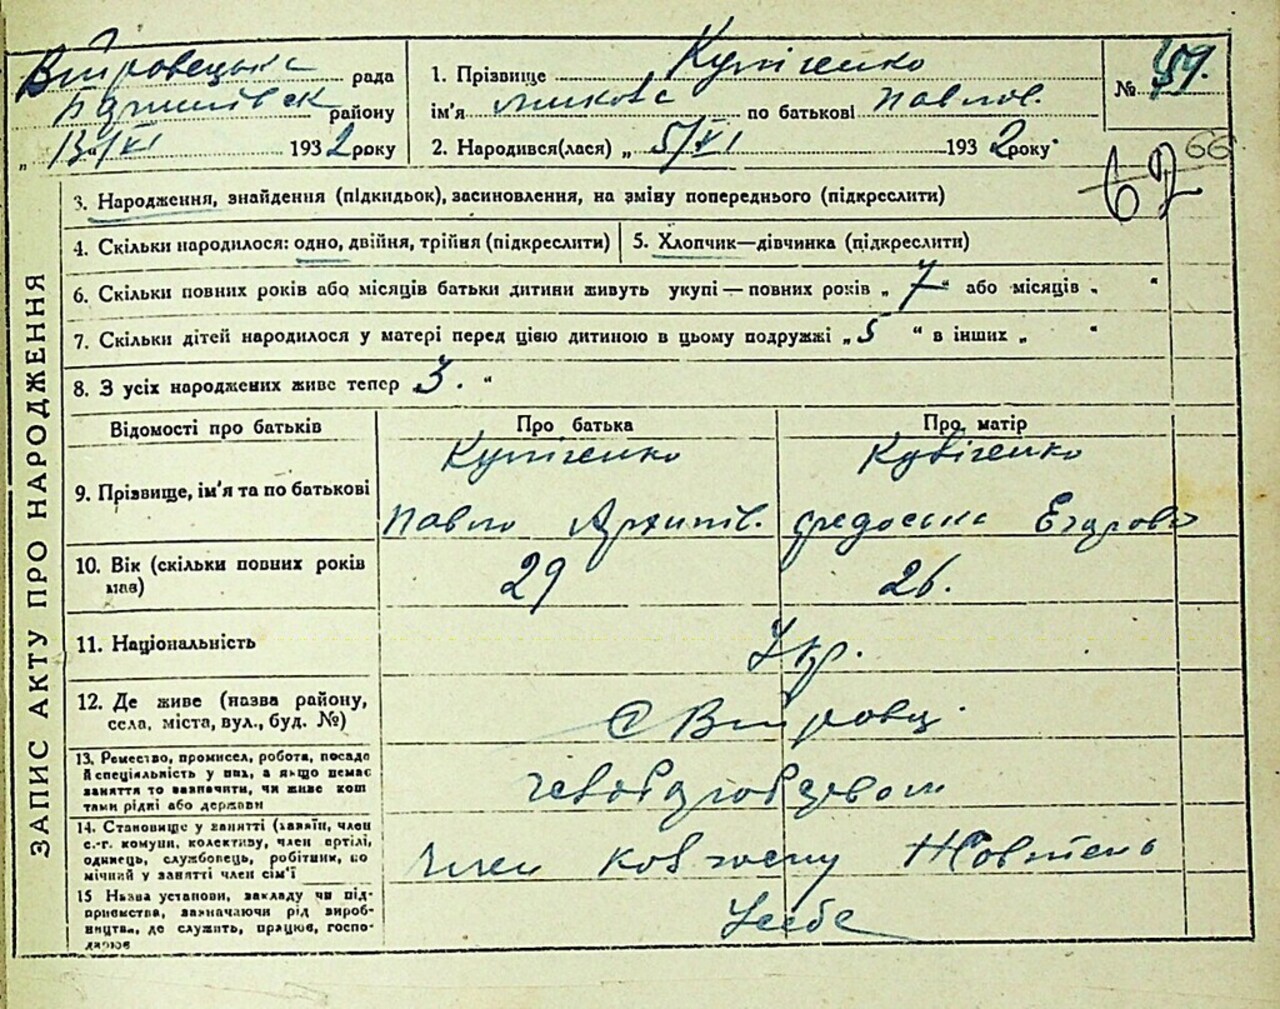 рада
району
„ 13/VI 1932 року
1. Прізвище
ім'я по батькові Павлов.
2. Народився(лася) „ 5/VI 1932 року
№ 59.
66
62
ЗАПИС АКТУ ПРО НАРОДЖЕННЯ
3. Народження, знайдення (підкидьок), засиновлення, на зміну попереднього (підкреслити)
4. Скільки народилося: одно, двійня, трійня (підкреслити)
5. Хлопчик—дівчинка (підкреслити)
6. Скільки повних років або місяців батьки дитини живуть укупі — повних років „ 7 “ або місяців „ “
7. Скільки дітей народилося у матері перед цією дитиною в цьому подружжі „ 5 “ в інших „ “
8. З усіх народжених живе тепер „ 3. “
Відомості про батьків
Про батька
Про матір
9. Прізвище, ім'я та по батькові
Павло Архипів.
Федоська Егорова
10. Вік (скільки повних років мав)
29
26.
11. Національність
Укр.
12. Де живе (назва району, села, міста, вул., буд. №)
13. Ремество, промисел, робота, посада й спеціяльність у них, а якщо немає заняття то зазначити, чи живе коштами рідні або держави
14. Становище у занятті (хазяїн, член с.-г. комуни, колективу, член артілі, одинець, службовець, робітник, помічний у занятті член сім'ї
Член Жовтень
15 Назва установи, закладу чи підприємства, зазначаючи рід виробництва, де служить, працює, господарює